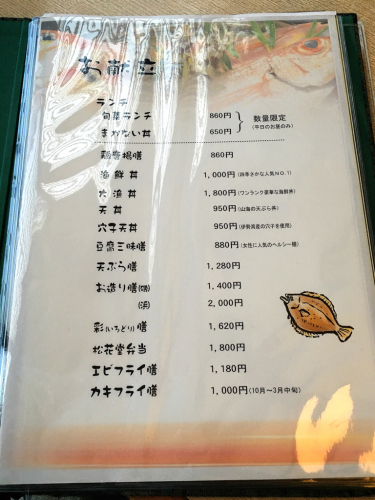 お献立
ランチ
旬菜ランチ 860円
まかない丼 650円
数量限定
(平日のお昼のみ)
鶏唐揚膳 860円
海鮮丼 1,000円 (四季さかな人気NO.1)
大漁丼 1,800円 (ワンランク豪華な海鮮丼)
天丼 950円 (山海の天ぷら丼)
穴子天丼 950円 (伊勢湾産の穴子を使用)
豆腐三昧膳 880円 (女性に人気のヘルシー膳)
天ぷら膳 1,280円
お造り膳 1,400円
2,000円
彩(いろどり)膳 1,620円
松花堂弁当 1,800円
エビフライ膳 1,180円
カキフライ膳 1,000円 (10月〜3月中旬)